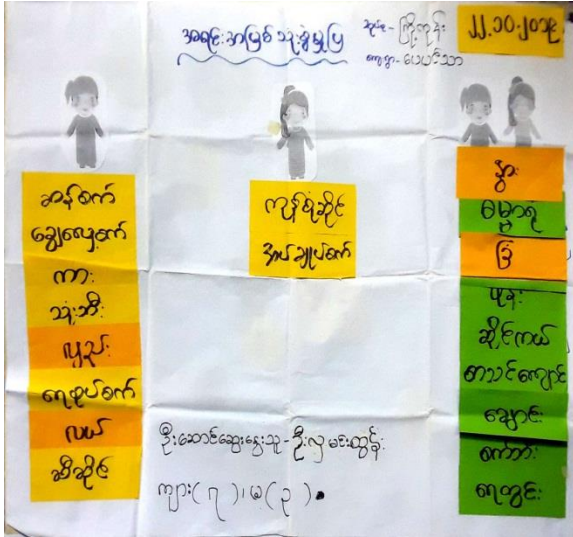 အရင်းအမြစ်သုံးစွဲမှုပြ
အုပ်စု - ကြို့ကုန်း
ကျေးရွာ - ပေပင်သာ
၂၂.၁၀.၂၀၁၉
ဆန်စက်
ချွေလှေ့စက်
ကား
သုံးဘီး
လှည်း
ရေစုပ်စက်
လယ်
ဆီဆိုင်
ကုန်စုံဆိုင်
အပ်ချုပ်စက်
နွား
ဓမ္မာရုံ
ခြံ
ဖုန်း
ဆိုင်ကယ်
စာသင်ကျောင်း
ချောင်း
စက်ဘီး
ရေတွင်း
ဦးဆောင်ဆွေးနွေးသူ - ဦးလှမင်းထွန်း
ကျား(၇)၊ မ(၃)